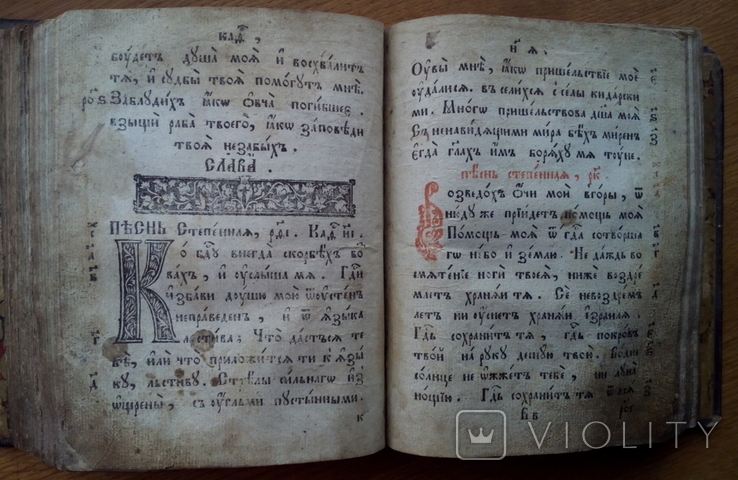 боудетъ душа моя и восхвалитъ
тя, и судбы твоя помогутъ мнѣ.
роѕ Заблудихъ ꙗкѡ ѻвча погибшее,
взыщи раба твоего, ꙗкѡ заповѣди
твоя незабыхъ.
СЛАВА.
ПѢСНЬ Степенная, Каѳ
Ко внегда скорбѣхъ во
вахъ, и оуслыша мя. Гди
избави доушю мою ѿ оустенъ
неправеденъ, и ѿ языка
льстива; Что дасться те
бѣ, или что приложится ти к язы
ку, льстиву. Стрѣлы сильнагѡ из
ѡщрены, съ оугльми пустынными.
к
Оувы мнѣ, ꙗкѡ пришельствіе мое
оудалися. вселихся с селы кидарски
ми. Многѡ пришельствова дша моя
Съ ненавидящими мира бѣхъ миренъ
егда глахъ имъ боряху мя тоуне.
ПѢСНЬ СТЕПЕННАЯ, рк
Возведохъ ѻчи мои вгоры, ѿ
нюду же пріидетъ помощь моя
Помощь моя ѿ гда сотворша
гѡ нбо и землю. Не даждь во
смятеніе ноги твоея, ниже воздре
млетъ храняи тя. Се невоздрем
летъ ни оуснетъ храняи израиля.
Гдь сохранитъ тя, гдь покровъ
твой на руку десную твою. Водни
солнце не ѡжжетъ тебе, ни луна
нощію. Гдь сохранитъ тя ѿ
VIOLITY